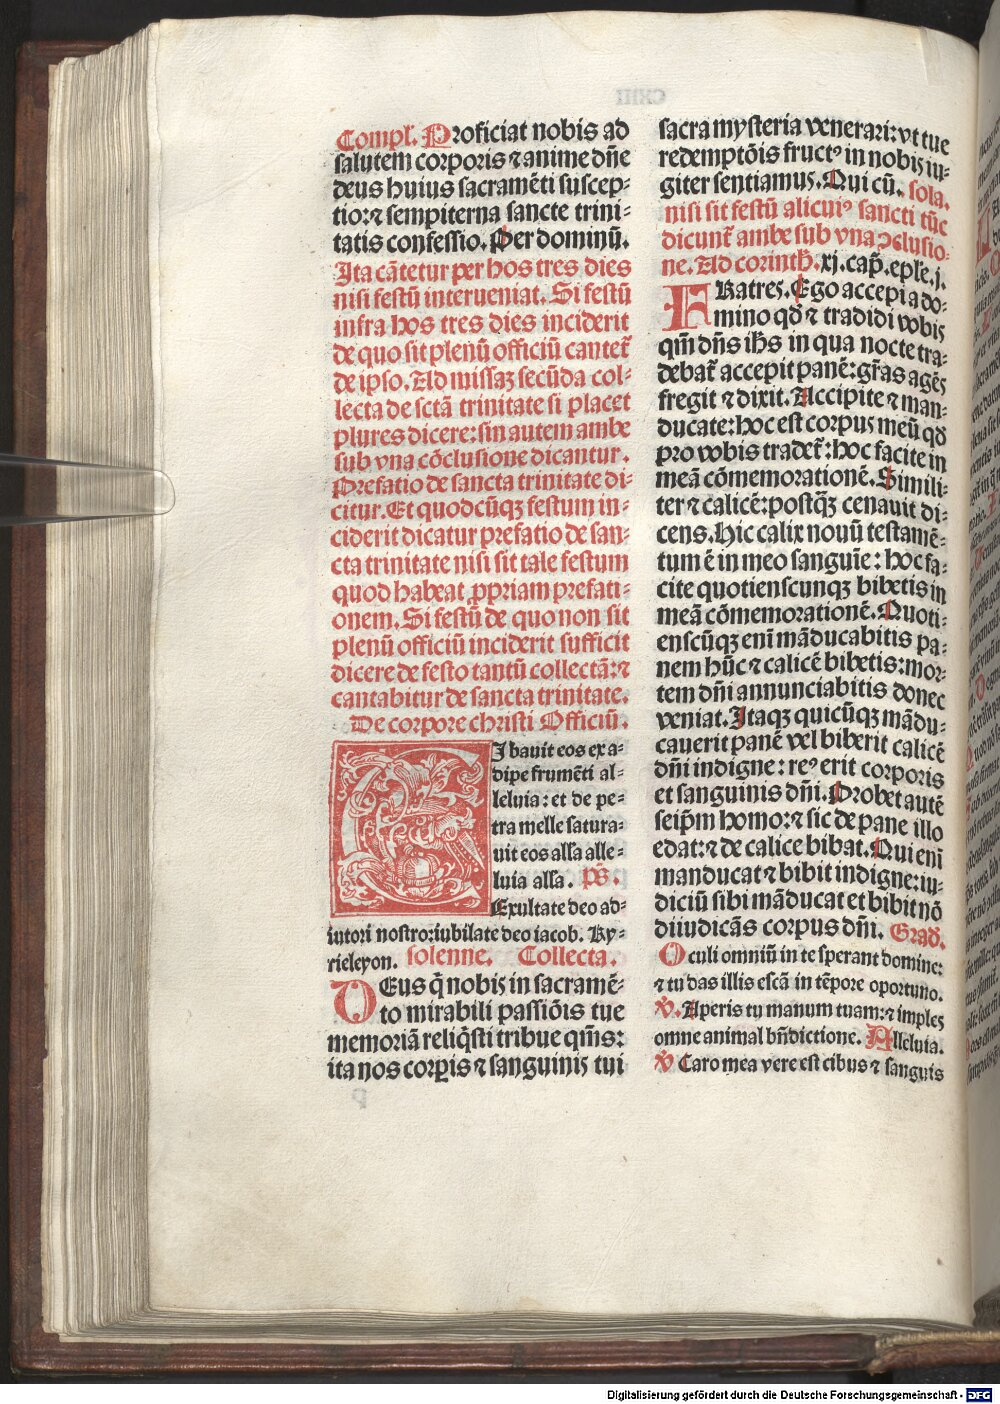 Compl. Proficiat nobis ad
salutem corporis ⁊ anime dñe
deus huius sacramēti suscep-
tio:⁊ sempiterna sancte trini-
tatis confessio. Per dominū.
Ita cātetur per hos tres dies
nisi festū interueniat. Si festū
infra hos tres dies inciderit
de quo sit plenū officiū cantet᷑
de ipso. Ad missaꝫ secūda col-
lecta de sctā trinitate si placet
plures dicere: sin autem ambe
sub vna cōclusione dicantur.
Prefatio de sancta trinitate di-
citur. Et quodcūqꝫ festum in-
ciderit dicatur prefatio de san-
cta trinitate nisi sit tale festum
quod habeat ꝓpriam prefati-
onem. Si festū de quo non sit
plenū officiū inciderit sufficit
dicere de festo tantū collectā:⁊
cantabitur de sancta trinitate.
De corpore christi Officiū.
CIbauit eos ex a-
dipe frumēti al-
leluia: et de pe-
tra melle satura-
uit eos alla alle-
luia alla. p̄s.
Exultate deo ad-
iutori nostro: iubilate deo iacob. Ky-
rieleyon. solenne. Collecta.
DEus q̄ nobis in sacramē-
to mirabili passiōis tue
memoriā reliq̇sti tribue qm̄s:
ita nos corꝑis ⁊ sanguinis tui
sacra mysteria venerari: vt tue
redemptōis fructꝰ in nobis iu-
giter sentiamus. Qui cū. sola.
nisi sit festū alicuiꝰ sancti tūc
dicunt᷑ ambe sub vna ↄclusio-
ne. Ad corinth. xj. cap̄. eple. j.
FRatres. Ego accepi a do-
mino qđ ⁊ tradidi vobis
qm̄ dn̄s ih̄s in qua nocte tra-
debat᷑ accepit panē: gr̄as agēs
fregit ⁊ dixit. Accipite ⁊ man-
ducate: hoc est corpus meū qđ
pro vobis tradet᷑: hoc facite in
meā cōmemorationē. Simili-
ter ⁊ calicē: postq̄ꝫ cenauit di-
cens. Hic calix nouū testamē-
tum ē in meo sanguīe: hoc fa-
cite quotienscunqꝫ bibetis in
meā cōmemorationē. Quoti-
enscūqꝫ enī māducabitis pa-
nem hūc ⁊ calicē bibetis: mor-
tem dn̄i annunciabitis donec
veniat. Itaqꝫ quicūqꝫ mādu-
cauerit panē vel biberit calicē
dn̄i indigne: reꝰ erit corporis
et sanguinis dn̄i. Probet autē
seip̄m homo:⁊ sic de pane illo
edat:⁊ de calice bibat. Qui enī
manducat ⁊ bibit indigne: iu-
diciū sibi māducat et bibit nō
diiudicās corpus dn̄i. Grad.
Oculi omniū in te sperant domine:
⁊ tu das illis escā in tēpore oportuno.
℣. Aperis tu manum tuam:⁊ imples
omne animal bn̄dictione. Alleluia.
℣ Caro mea vere est cibus ⁊ sanguis
Digitalisierung gefördert durch die Deutsche Forschungsgemeinschaft - DFG